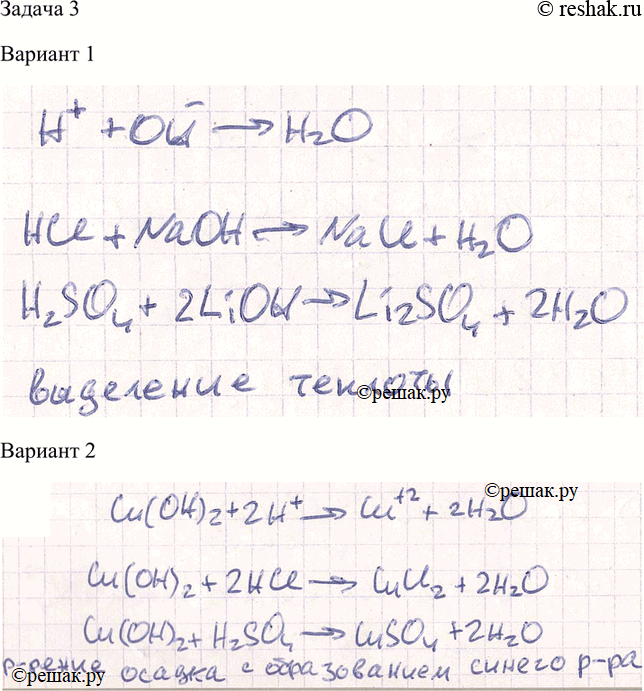 Задача 3
© reshak.ru
Вариант 1
H⁺ + OH⁻ → H₂O
HCl + NaOH → NaCl + H₂O
H₂SO₄ + 2LiOH → Li₂SO₄ + 2H₂O
выделение теплоты
©решак.ру
Вариант 2
©решак.ру
Cu(OH)₂ + 2H⁺ → Cu⁺² + 2H₂O
Cu(OH)₂ + 2HCl → CuCl₂ + 2H₂O
Cu(OH)₂ + H₂SO₄ → CuSO₄ + 2H₂O
р-рение осадка с образованием синего р-ра
©решак.ру